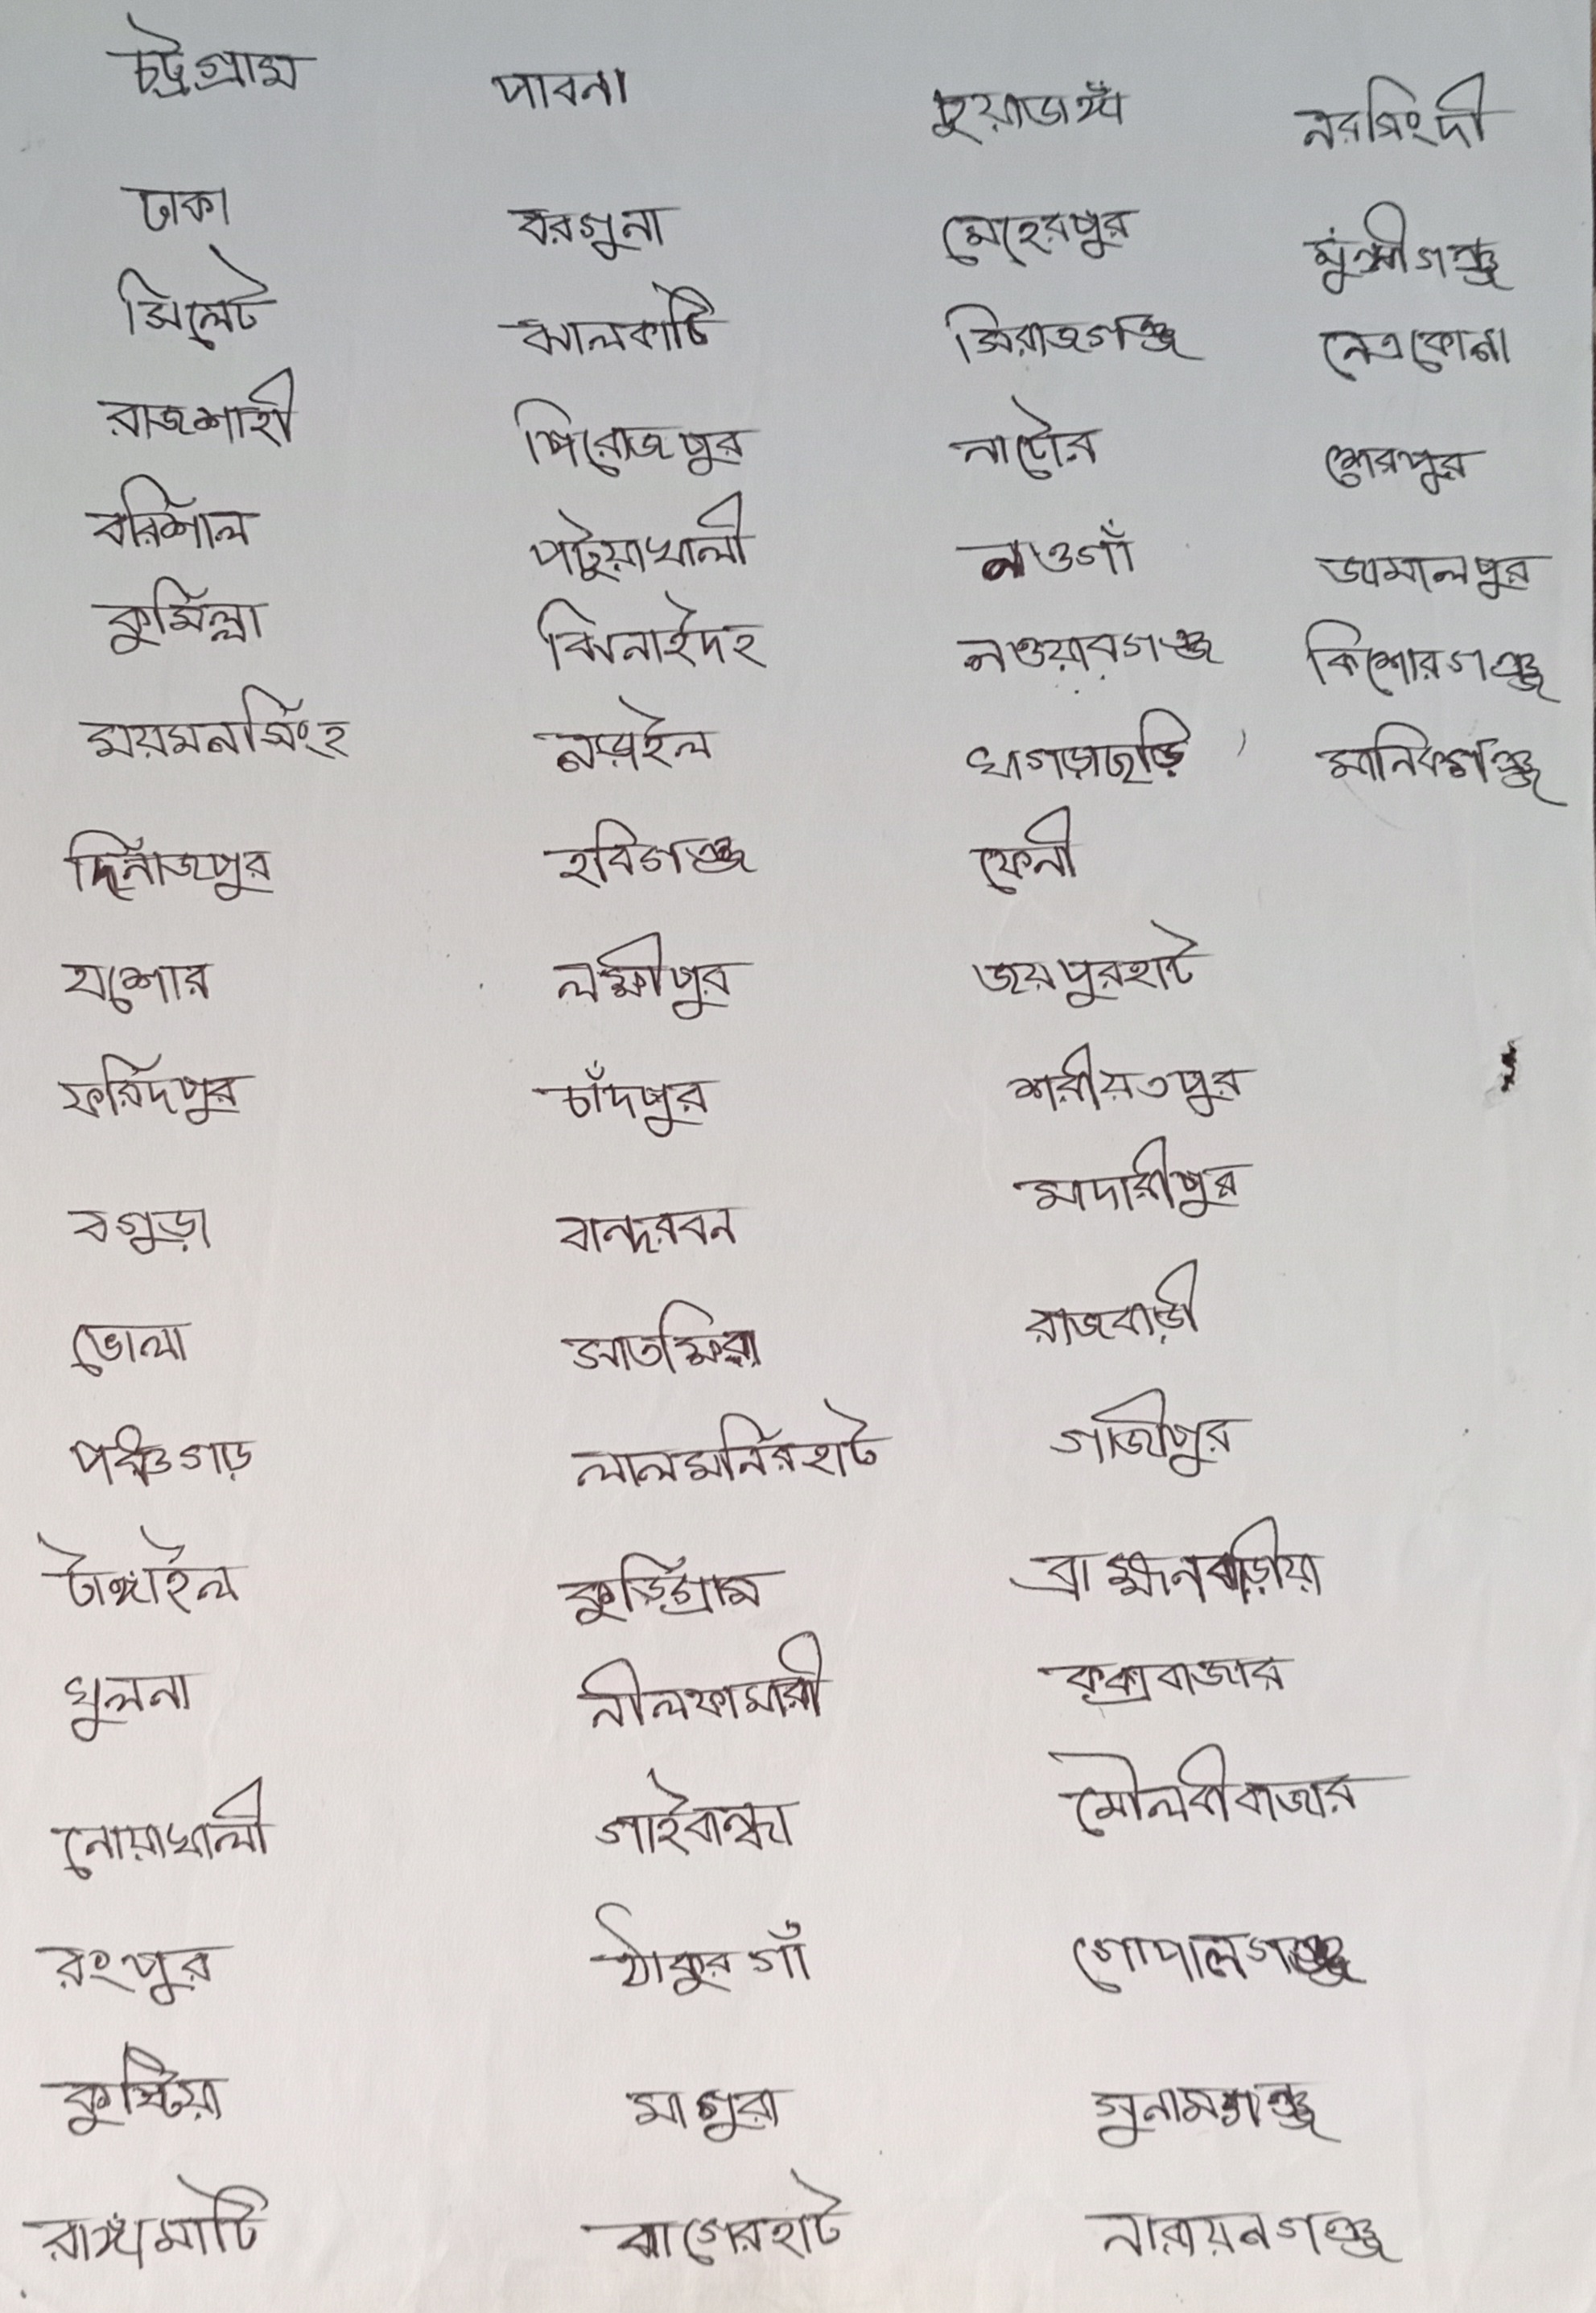 চট্রগ্রাম
ঢাকা
সিলেট
রাজশাহী
বরিশাল
কুমিল্লা
ময়মনসিংহ
দিনাজপুর
যশোর
ফরিদপুর
বগুড়া
ভোলা
পঞ্চগড়
টাঙ্গাইল
খুলনা
নোয়াখালী
রংপুর
কুষ্টিয়া
রাঙ্গামাটি
পাবনা
বরগুনা
ঝালকাটি
পিরোজপুর
পটুয়াখালী
ঝিনাইদহ
নড়াইল
হবিগঞ্জ
লক্ষীপুর
চাঁদপুর
বান্দরবন
সাতক্ষিরা
লালমনিরহাট
কুড়িগ্রাম
নীলফামারী
গাইবান্ধা
ঠাকুরগাঁ
মাগুরা
বাগেরহাট
চুয়াডাঙ্গাঁ
মেহেরপুর
সিরাজগঞ্জ
নাটোর
নওগাঁ
নওয়াবগঞ্জ
খাগড়াছড়ি
ফেনী
জয়পুরহাট
শরীয়তপুর
মাদারীপুর
রাজবাড়ী
গাজীপুর
ব্রাহ্মনবাড়ীয়া
কক্সবাজার
মৌলবীবাজার
গোপালগঞ্জ
সুনামগঞ্জ
নারায়নগঞ্জ
নরসিংদী
মুন্সীগঞ্জ
নেত্রকোনা
শেরপুর
জামালপুর
কিশোরগঞ্জ
মানিকগঞ্জ